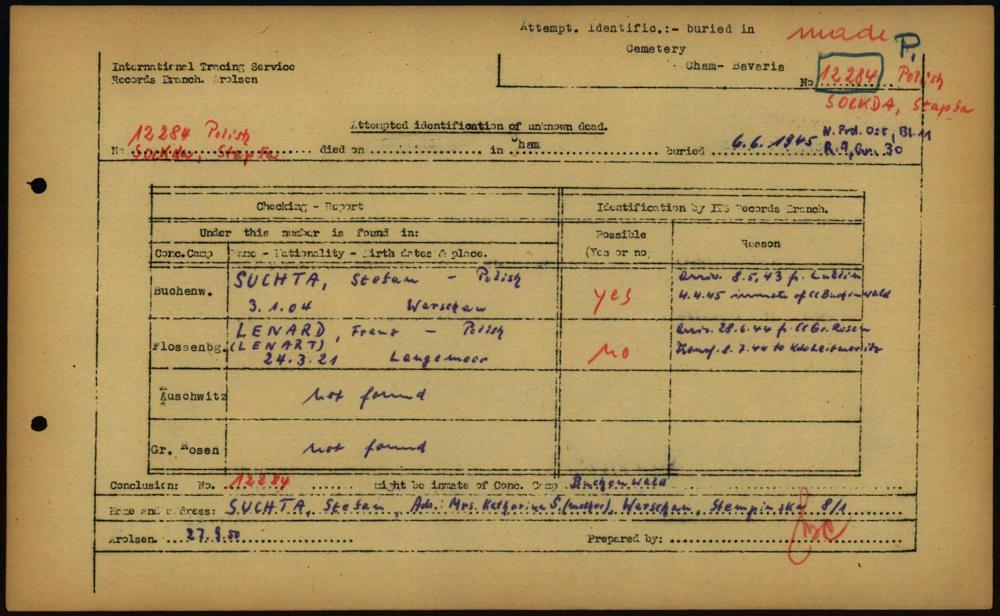 Attempt. Identific.:- buried in
Cemetery
Cham- Bavaria
made P.
No 12284 Polish
SOCKDA, Stapfa
International Tracing Service
Records Branch. Arolsen
Attempted identification of unknown dead.
12284 Polish
No Sockda, Stapfa died on in Cham buried 6.6.1945
N. Frd. Ost, Bl. 11
R. 9, Gr. 30
Checking - Report
Identification by ITS Records Branch.
Under this number is found in:
Possible
(Yes or no)
Reason
Conc.Camp
Name - Nationality - Birth dates & place.
Buchenw.
SUCHTA, Stefan - Polish
3.1.04 Warschau
yes
arriv. 8.5.43 fr. Lublin
4.4.45 inmate of CC Buchenwald
Flossenbg.
LENARD, Franz - Polish
(LENART)
24.3.21 Langemoor
no
arriv. 28.6.44 fr. CC Gr. Rosen
Transf. 8.7.44 to Kdo Leitmeritz
Auschwitz
not found
Gr. Rosen
not found
Conclusion: No. 12284 might be inmate of Conc. Camp Buchenwald
Name and address: SUCHTA, Stefan, Adr.: Mrs. Katharina S. (mother), Warschau, Stempinska 8/1
Arolsen 27.9.50 Prepared by: